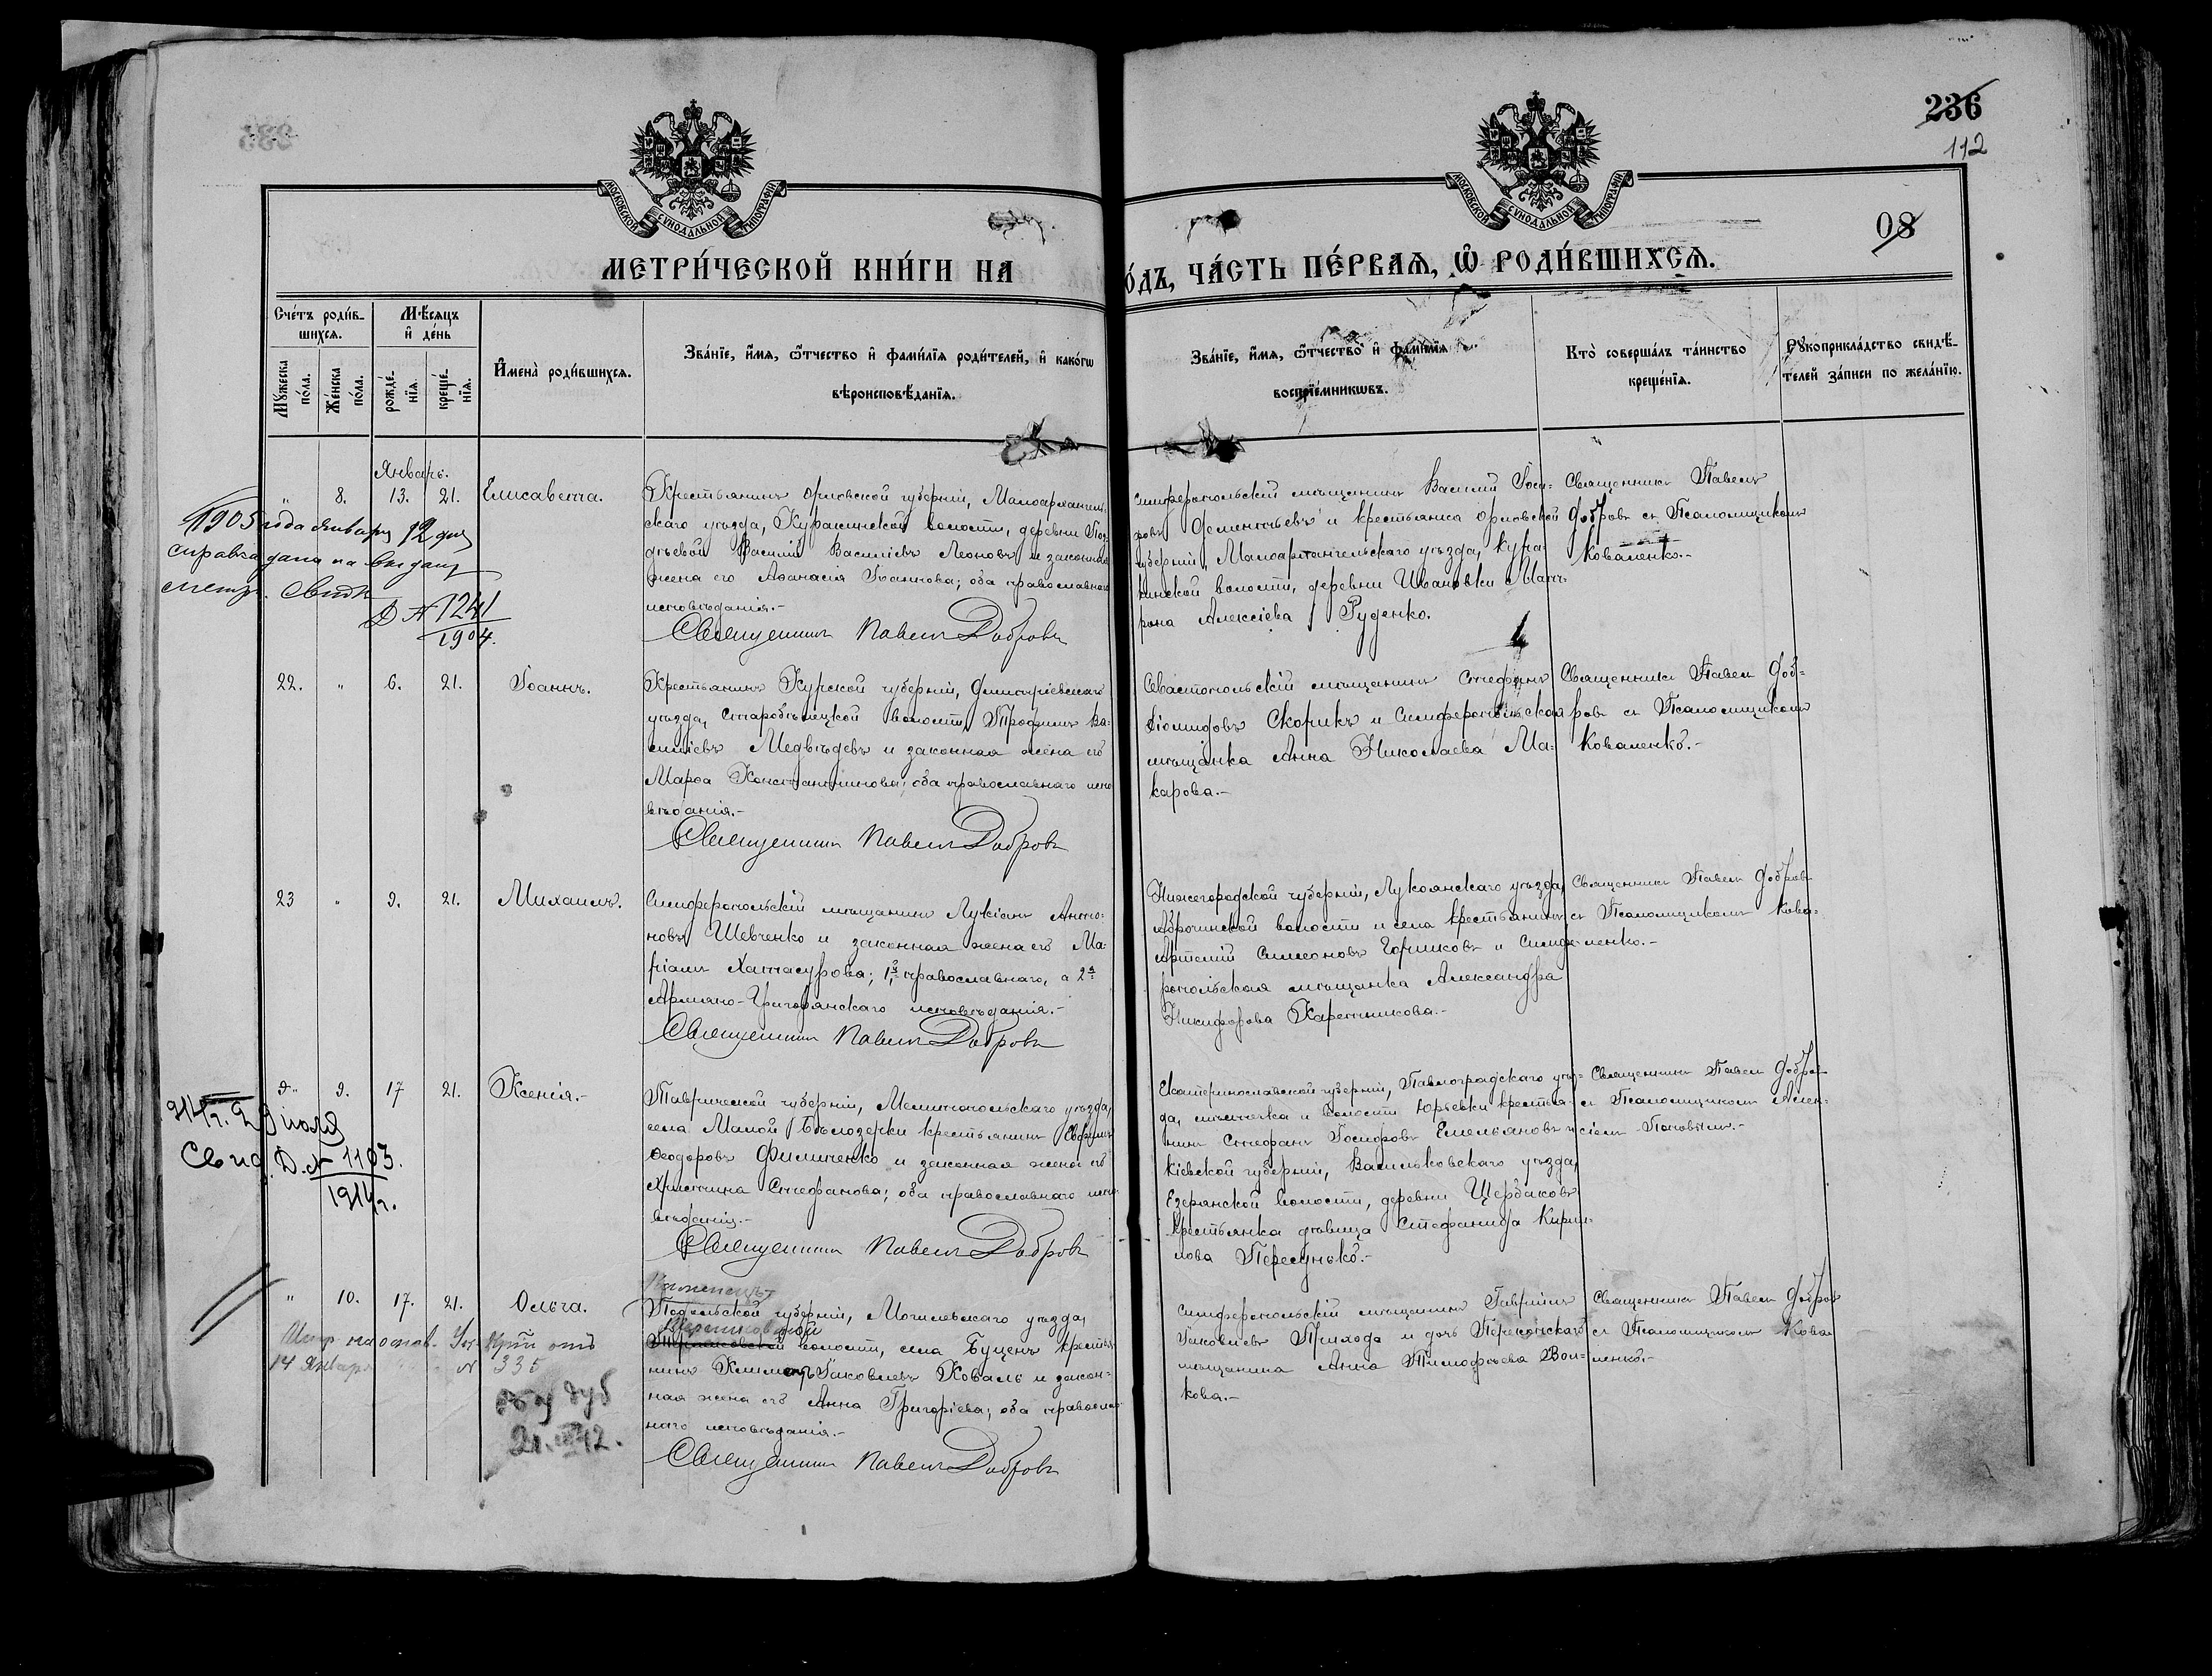 236
112
08
МОСКОВСКОЙ СѴНОДАЛЬНОЙ ТИПОГРАФІИ
МОСКОВСКОЙ СѴНОДАЛЬНОЙ ТИПОГРАФІИ
МЕТРИ́ЧЕСКОЙ КНИ́ГИ НА
О́ДЪ, ЧА́СТЬ ПЕ́РВАѦ, Ѽ РОДИ́ВШИХСѦ.
Сче́тъ роди́в-
шихсѧ.
Мѣ́сѧцъ
и҆ де́нь
Мꙋ́жеска по́ла.
Же́нска по́ла.
рожде́-
нїѧ.
креще́-
нїѧ.
И҆мена̀ роди́вшихсѧ.
Зва́нїе, и҆́мѧ, ѻ҆́тчество и҆ фами́лїѧ роди́телей, и҆ како́гѡ
вѣроисповѣ́данїѧ.
Зва́нїе, и҆́мѧ, ѻ҆́тчество и҆ фами́лїѧ
воспрїе́мникѡвъ.
Кто̀ соверша́лъ та́инство
креще́нїѧ.
Рꙋкоприкла́дство свидѣ́-
телей за́писи по жела́нїю.
Январь.
" 8. 13. 21. Елисавета.
Крестьянинъ Орловской губерніи, Малоархангель-
скаго уѣзда, Куракинской волости, деревни
Василій Василіевъ Леоновъ и законная
жена его Аѳанасія Іоаннова; оба православнаго
исповѣданія.-
Священникъ Павелъ Добровъ
Симферопольскій мѣщанинъ Василій Іоси-
фовъ Дементьевъ и крестьянка Орловской
губерніи, Малоархангельскаго уѣзда, Кура-
кинской волости, деревни Ивановки Мат-
рона Алексіева Руденко.
Священникъ Павелъ
Добровъ съ Псаломщикомъ
Коваленко.-
1905 года января 12 дня
справка дана на выдачу
метр. Свид.
Д № 1241
1904.
22. " 6. 21. Іоаннъ.
Крестьянинъ Курской губерніи, Дмитріевскаго
уѣзда, Старобѣлицкой волости, Трофимъ Ва-
силіевъ Медвѣдевъ и законная жена его
Марѳа Константинова; оба православнаго испо
вѣданія.-
Священникъ Павелъ Добровъ
Севастопольскій мѣщанинъ Стефанъ
Діомидовъ Скорикъ и Симферопольская
мѣщанка Анна Николаева Ма-
карова.-
Священникъ Павелъ Доб-
ровъ съ Псаломщикомъ
Коваленко.-
23 " 9. 21. Михаилъ.
Симферопольскій мѣщанинъ Лукіанъ Анто-
новъ Шевченко и законная жена его Ма-
ріамъ Хатасурова; 1й православнаго, а 2я
Армяно-Григоріанскаго исповѣданія.-
Священникъ Павелъ Добровъ
Нижегородской губерніи, Лукоянскаго уѣзда,
волости и села крестьянинъ
Артемій Симеоновъ Горшковъ и Симфе-
ропольская мѣщанка Александра
Никифорова Каретникова.-
Священникъ Павелъ Добровъ
съ Псаломщикомъ Кова-
ленко.-
" 9. 17 21. Ксенія.-
Таврической губерніи, Мелитопольскаго уѣзда,
села Малой Бѣлозерки крестьянинъ
Ѳеодоровъ Филипенко и законная жена его
Христина Стефанова; оба православнаго испо-
вѣданія.-
Священникъ Павелъ Добровъ
Екатеринославской губерніи, Павлоградскаго уѣз-
да, мѣстечка и волости Юрьевки крестья-
нинъ Стефанъ Іосифовъ Емельяновъ и
Кіевской губерніи, Васильковскаго уѣзда,
Езерянской волости, деревни Щербаковъ
крестьянка дѣвица Стефанида Кирил-
лова Пересунько.-
Священникъ Павелъ Добров
съ Псаломщикомъ Алек-
сіемъ Поповымъ.-
914 г. 29 іюля
Свид. Д. № 1103.
1914 г.
" 10. 17. 21. Ольга.
Подольской губерніи, Могилевскаго уѣзда,
волости, села Буценъ крестья-
нинъ Климентъ Іаковлевъ Коваль и закон-
ная жена его Анна Григоріева; оба православ-
наго исповѣданія.-
Священникъ Павелъ Добровъ
Симферопольскій мѣщанинъ Гавріилъ
Іаковлевъ Приходо и дочь Перекопскаго
мѣщанина Анна Тимоѳеева Вол-
кова.-
Священникъ Павелъ Добров
съ Псаломщикомъ Кова-
ленко.-
14 Января № 335
дуб
21. 42.